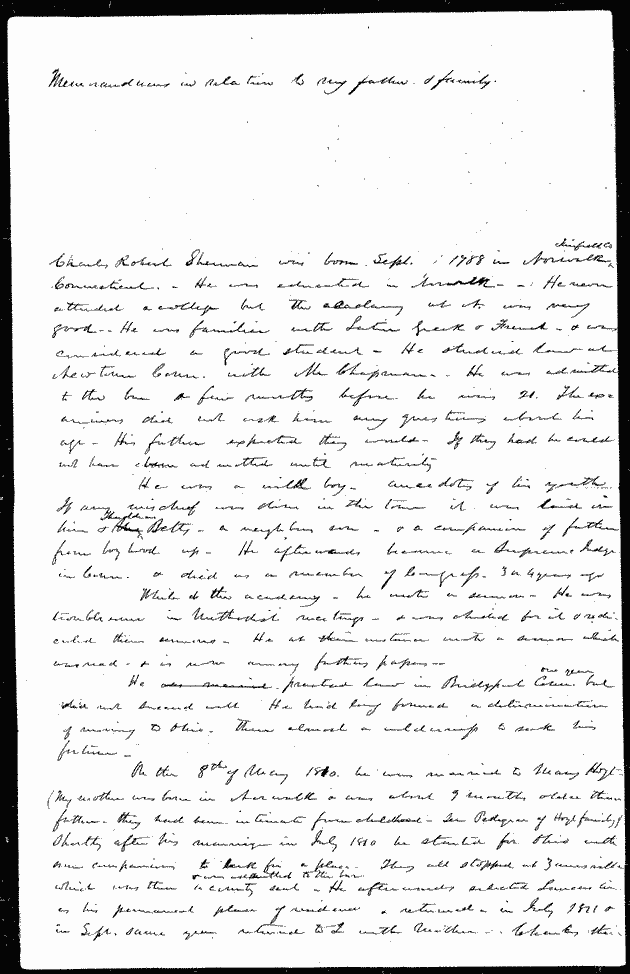 Memorandums in relation to my father & family.
Fairfield Co
Charles Robert Sherman was born Sept. 1788 in Norwalk,
Connecticut. - He was educated in Norwalk - - He never
attended a college but the academy at N. was very
good - - He was familiar with Latin Greek & French - & was
considered a good student - He studied law at
Newtown Conn. with Mr Chapman - He was admitted
to the bar a few months before he was 21. The ex-
aminers did not ask him any questions about his
age - His father expected they would - If they had he could
not have been admitted until maturity
He was a wild boy - anecdotes of his youth.
If any mischief was done in the town it was laid on
Thaddeus
him & Betts - a neighbors son - & a companion of father
from boyhood up - He afterwards became a Supreme Judge
in Conn. & died as a member of Congress - 3 or 4 years ago
While at the academy - he wrote a sermon - He was
troublesome in Methodist meetings - & was chided for it & redi-
culed their sermons - He at their instance wrote a sermon which
was read - & is now among fathers papers -
one year
He was married practised law in Bridgeport Conn. but
did not succeed well He had long formed a determination
of moving to Ohio. then almost a wilderness to seek his
fortune -
On the 8th of May 1810. he was married to Mary Hoyt -
(My mother was born in Norwalk & was about 9 months older than
father - they had been intimate from childhood - See Pedigree of Hoyt family)
Shortly after his marriage in July 1810 he started for Ohio with
some companions to look for a place - They all stopped at Zanesville
& was admitted to the bar
which was then a county seat - He afterwards selected Lancaster
as his permanent place of residence & returned - in July 1811 &
in Sept. same year returned to L with Mother - - Charles their